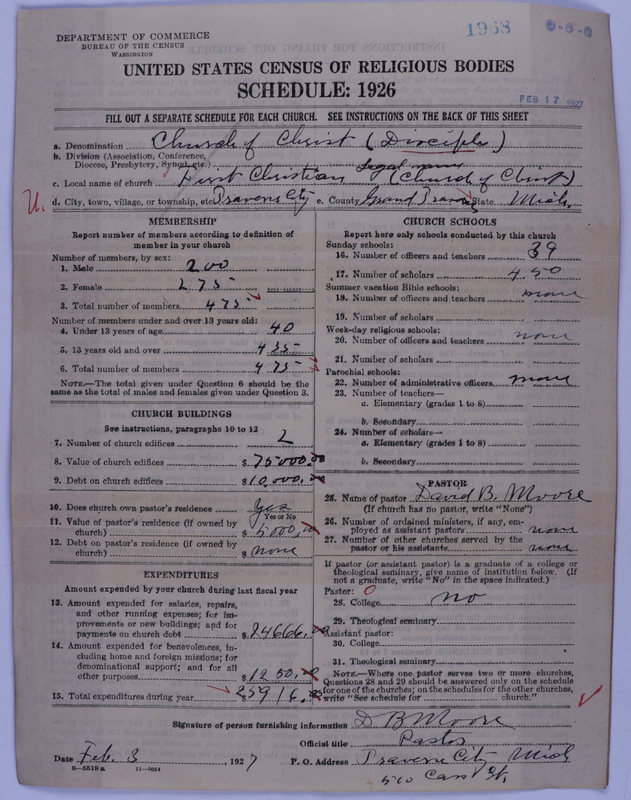 1968
DEPARTMENT OF COMMERCE
BUREAU OF THE CENSUS
WASHINGTON
UNITED STATES CENSUS OF RELIGIOUS BODIES
SCHEDULE: 1926
FEB 17 1927
FILL OUT A SEPARATE SCHEDULE FOR EACH CHURCH. SEE INSTRUCTIONS ON THE BACK OF THIS SHEET
a. Denomination Church of Christ (Disciples)
b. Division (Association, Conference, Diocese, Presbytery, Synod, etc.) Legal name
c. Local name of church First Christian (Church of Christ)
U. d. City, town, village, or township, etc. Travers City e. County Grand Travers State Mich.
MEMBERSHIP
Report number of members according to definition of member in your church
Number of members, by sex:
1. Male 200
2. Female 275
3. Total number of members 475
Number of members under and over 13 years old:
4. Under 13 years of age 40
5. 13 years old and over 435
6. Total number of members 475
NOTE.—The total given under Question 6 should be the same as the total of males and females given under Question 3.
CHURCH BUILDINGS
See instructions, paragraphs 10 to 12
7. Number of church edifices 2
8. Value of church edifices $75000.00
9. Debt on church edifices $10,000.00
10. Does church own pastor's residence? Yes
Yes or No
11. Value of pastor's residence (if owned by church) $5000.00
12. Debt on pastor's residence (if owned by church) $ None
EXPENDITURES
Amount expended by your church during last fiscal year
13. Amount expended for salaries, repairs, and other running expenses; for improvements or new buildings; and for payments on church debt $24666.00
14. Amount expended for benevolences, including home and foreign missions; for denominational support; and for all other purposes $1250.00
15. Total expenditures during year 25916.00
CHURCH SCHOOLS
Report here only schools conducted by this church
Sunday schools:
16. Number of officers and teachers 39
17. Number of scholars 450
Summer vacation Bible schools:
18. Number of officers and teachers none
19. Number of scholars
Week-day religious schools:
20. Number of officers and teachers none
21. Number of scholars
Parochial schools:
22. Number of administrative officers none
23. Number of teachers—
a. Elementary (grades 1 to 8)
b. Secondary
24. Number of scholars—
a. Elementary (grades 1 to 8)
b. Secondary
PASTOR
25. Name of pastor David B. Moore
(If church has no pastor, write "None")
26. Number of ordained ministers, if any, employed as assistant pastors none
27. Number of other churches served by the pastor or his assistants none
If pastor (or assistant pastor) is a graduate of a college or theological seminary, give name of institution below. (If not a graduate, write "No" in the space indicated.)
Pastor: 0
28. College no
29. Theological seminary
Assistant pastor:
30. College
31. Theological seminary
NOTE.—Where one pastor serves two or more churches, Questions 28 and 29 should be answered only on the schedule for one of the churches; on the schedules for the other churches, write "See schedule for church."
Signature of person furnishing information D B Moore
Official title Pastor
Date Feb. 3, 1927 P. O. Address Travers City Mich
8—5518 a 11—9054
510 Cass St.